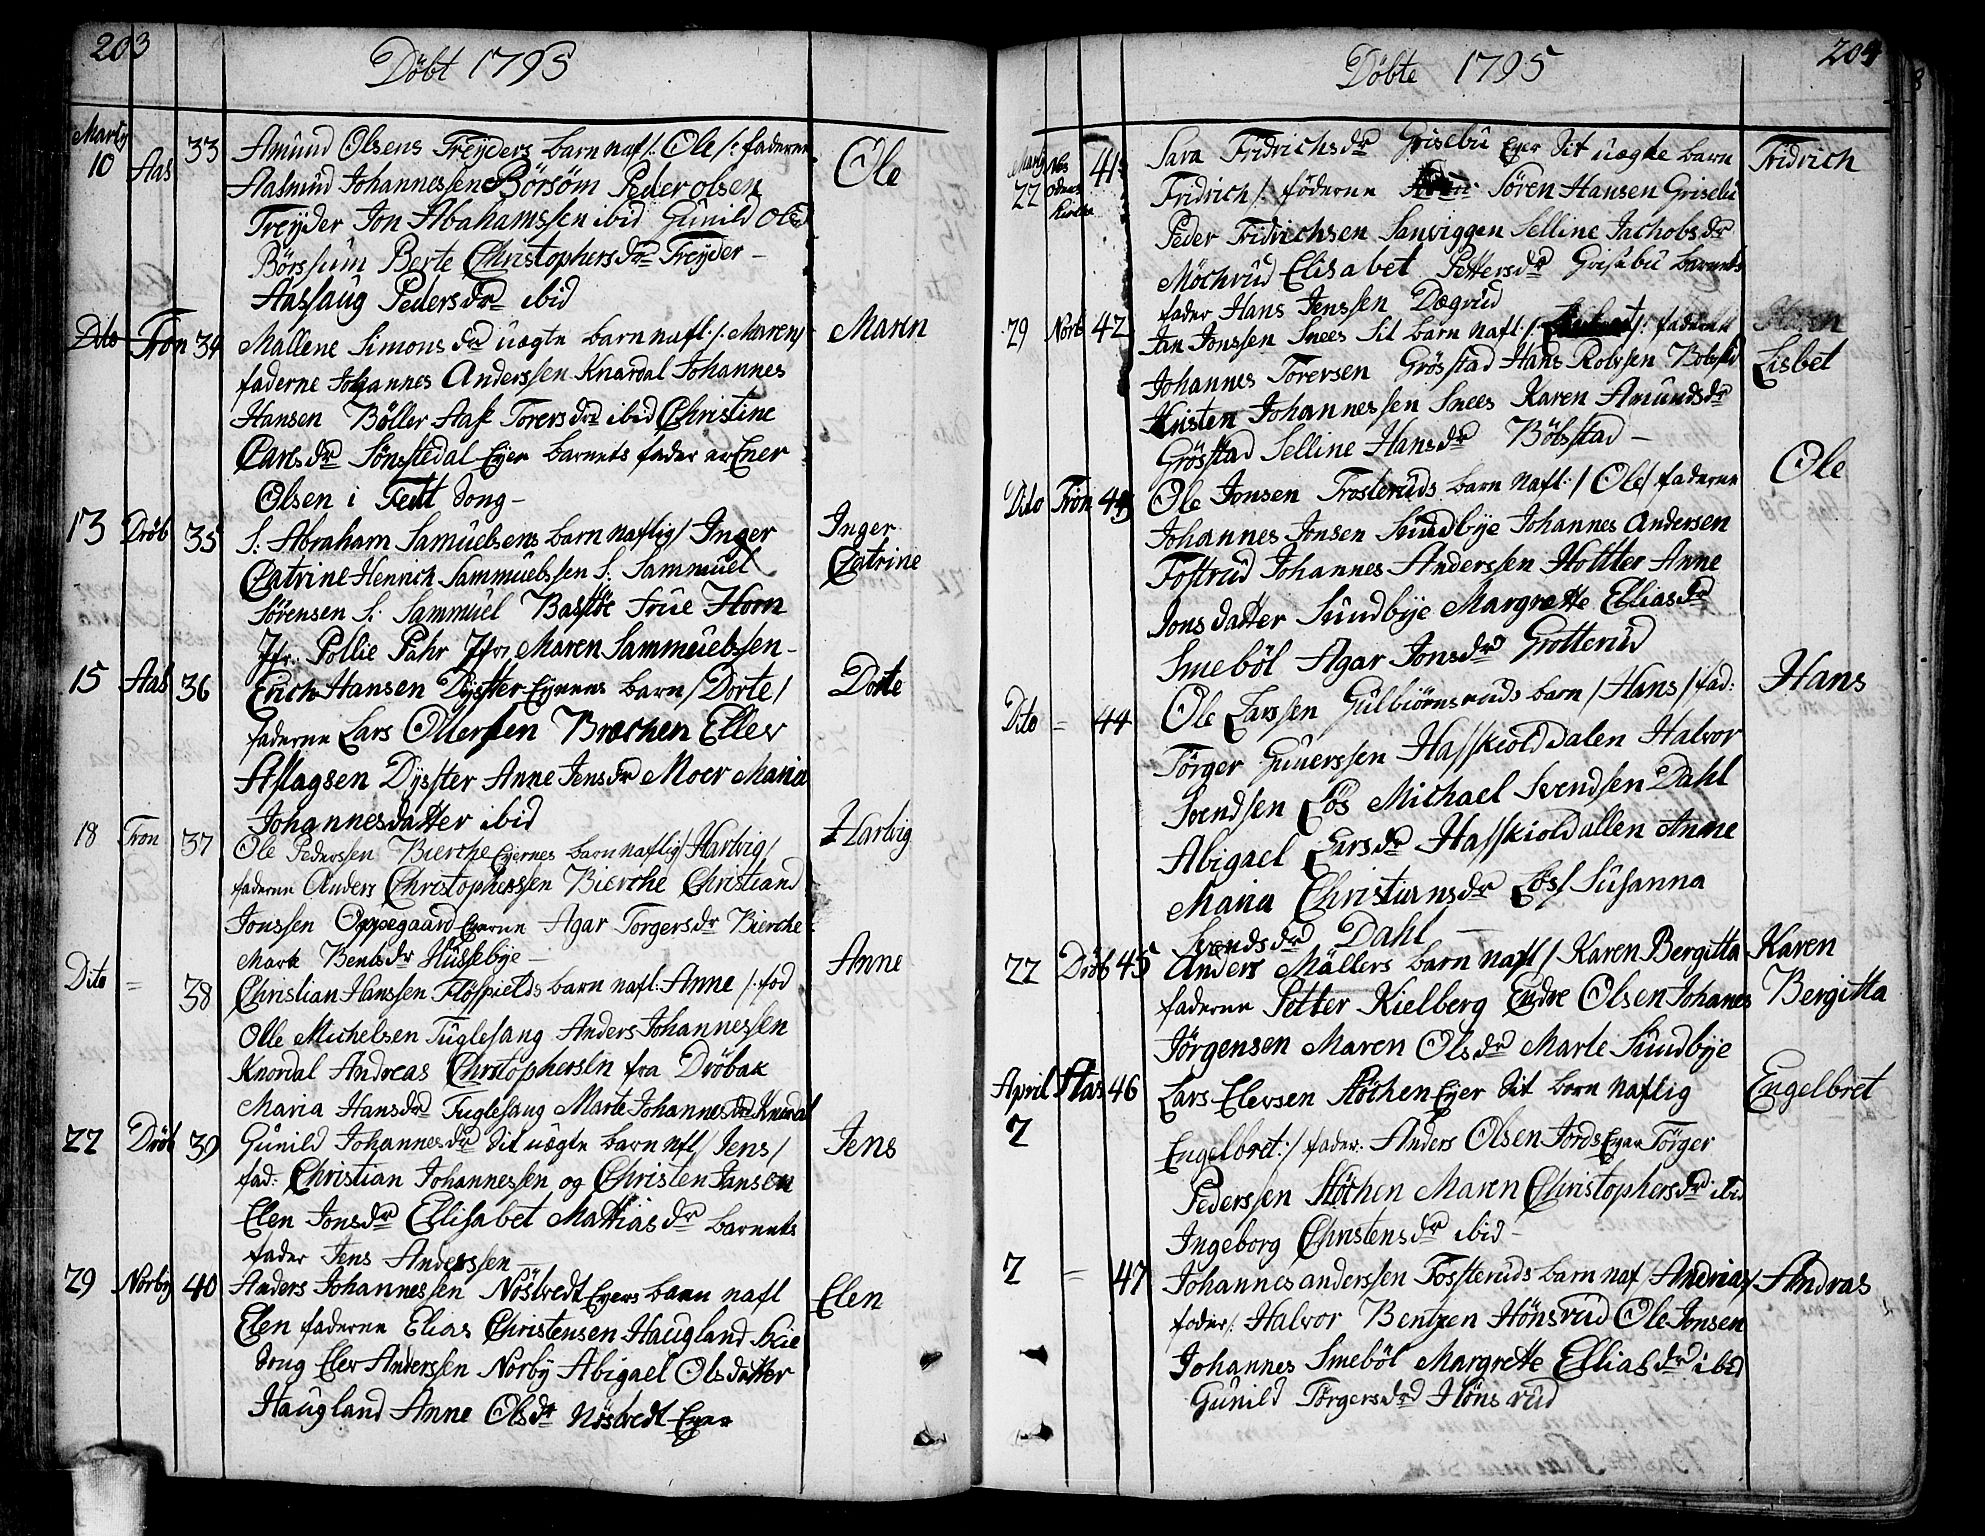 203
Döbt 1795
Martÿ
10 Aas 33 Amünd Olsens Treÿders barn nafl. Ole /: faderne Ole
Aasmünd Johannessen Börsöm Peder olsen
Treÿder Jon Abahamssen ibid Günild Olsd
Börssüm Berte Christophersdr Treÿder –
Aaslaug Pedersdr ibid
Dito Tron 34 Mallene Simonsdr üægte barn nafl. /. Maren/ Maren
faderne Johannes Anderssen Knardal Johannes
Hansen Böller Aase Torersdr ibid Christine
Carlsdr Sönstedal Eyer barnets fader er Ener
Olsen i Fedt Song –
13 Dröb 35 S: Abraham Samüelsens barn naflig / Inger Inger
Catrine Henrich Sammüelssen S: Sammüel Catrine
Sörensen S: Sammüel Bastöe Früe Horn
Jfr: Pollie Pahr Jfr: Maren Sammüelssen –
15 Aas 36 Erich Hansen Dÿster Eyerens barn / Dorte / Dorte
faderne Lars Ollersen Brechen Ellev
Aslagsen Dÿsster Anne Jensdr Moer Maria
Johannesdatter ibid
18 Tron 37 Ole Pederssen Bierche Eyernes barn naflig / Hartvig / Hartvig
faderne Anders Christophessen Bierche Christiand
Jonssen Oppegaard Eyerne Agar Torgersdr Bierche
Mark Bentsdr Hüssebye –
Dito = 38 Christian Hanssen Flöspields barn nafl: Anne /. fad Anne
Olle Michelsen Tüglesang Anders Johannessen
Knardal Andreas Christophersen fra Dröbak
Maria Hansdr Tuglesang Marte Johannesdr Knerdal
22 Dröb 39 Günild Johannesdr Sit üægte barn nfl / Jens / Jens
fad: Christian Johannessen og Christen Jansen
Elen Jonsdr Ellisabet Mattiasdr barnets
fader Jens Anderssen –
29 Norby 40 Anders Johannessen Nöstvedt Eyers barn nafl Elen
Elen faderne Elias Christensen Haugland Skie
Soug Elev Anderssen Norby Abigael Olsdatter
Haugland Anne Olsdr Nöstvedt Eyer
204
Döbte 1795
Martÿ
22 41 Sara Fridrichsdr Grisebü Eyer Sit üægte barn Fridrich
Fridrich /: föderne Sören Hansen Grisebü
Peder Fridrichsen Sanviggen Selline Jachobsdr
Möchrüd Elisabet Pettersdr Grisebü barnets
fader Hans Jenssen Dægrüd
29 Norb 42 Jan Jonssen Snees Sit barn nafl. / /: faderne
Johannes Torersen Grösstad Hans Rolvsen Bölstd Lisbet
Kristen Johannessen Snees Karen Amundsdr
Grösstad Selline Hansdr Bölsstad –
Dito Tron 43 Ole Jonsen Trosteruds barn nafl. / Ole / faderne Ole
Johannes Jonsen Sundbÿe Johannes Andersen
Fostrüd Johannes Anderssen Holtter Anne
Jonsdatter Sündbÿe Margrette Elliasdr
Smeböl Agar Jonsdr Grotterüd
Dito = 44 Ole Larssen Gülbiörnsruds barn / Hans / fad: Hans
Törger Güuerssen Hasskiolddalen Halvor
Svendsen Lös Michael Svendsen Dahl
Abigael Larsdr Hasskioldallen Anne
Maria Christiansdr Lös / Süsanna
Svendsdr Dahl –
22 Dröb 45 Anders Mällers barn nafl / Karen Bergitta Karen
faderne Petter Kielberg Endre Olsen Johanes Bergitta
Jörgensen Maren Olsdr Marte Sündbÿe
April Aas 46 Lars Elevsen Stöchen Eyer Sit born naflig Engelbret
2 Engelbret: / fader: Anders Olsen Jords Eyer Törger
Pederssen Stöchen Maren Christophersdr ibid
Ingeborg Christensdr ibid –
2 = 47 Johannes anderssen Fossteruds barn naf / Andrias / Andras
fader/: Halvor Bentzen Hönsrüd Ole Jonsen
Johannes Smeböl Margrette Elliasdr ibid
Günild Törgersdr Hönsrüd